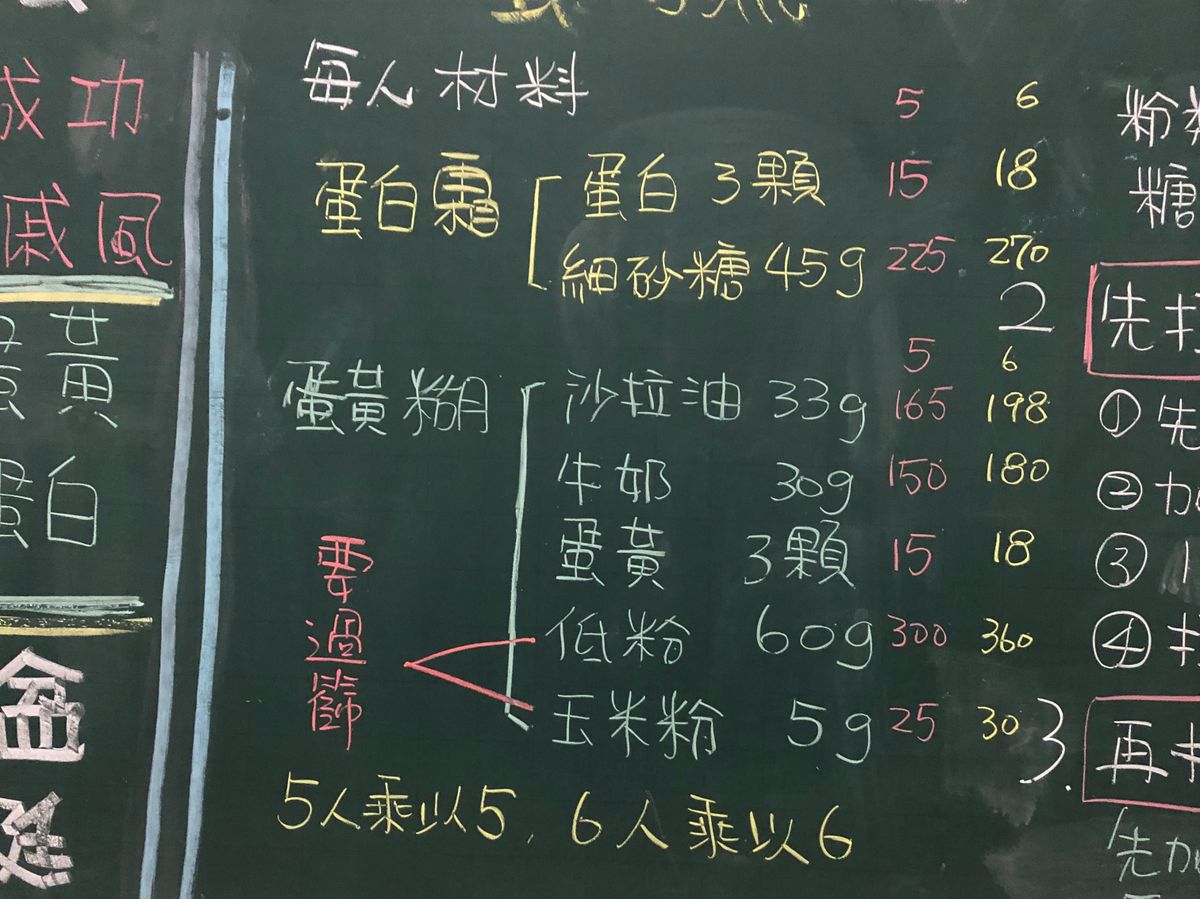 成功
戚風
蛋黃
蛋白
每人材料 5 6
蛋白霜 蛋白 3顆 15 18
細砂糖 45g 225 270
5 6
蛋黃糊 沙拉油 33g 165 198
牛奶 30g 150 180
蛋黃 3顆 15 18
低粉 60g 300 360
玉米粉 5g 25 30
要過篩
5人乘以5，6人乘以6
粉
糖
2
先打
① 先
② 加
③
④ 打
3.
再
先加